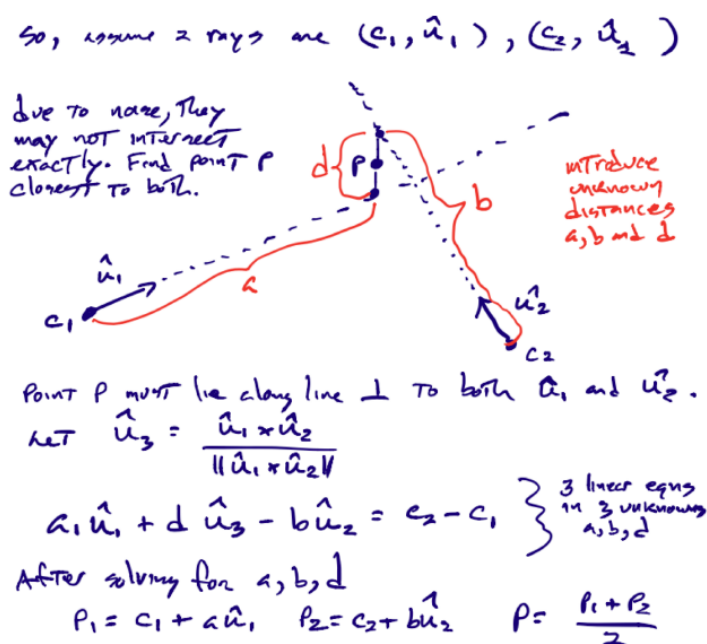 So, assume 2 rays are (c₁, û₁), (c₂, û₂)
due to noise, they
may not intersect
exactly. Find point P
closest to both.
d
P
b
introduce
unknown
distances
a, b and d
û₁
a
c₁
û₂
c₂
Point P must lie along line ⊥ to both û₁ and û₂.
Let û₃ = û₁ × û₂ / ||û₁ × û₂||
a₁û₁ + d û₃ - bû₂ = c₂ - c₁
3 linear eqns
in 3 unknowns
a, b, d
After solving for a, b, d
P₁ = c₁ + aû₁ P₂ = c₂ + bû₂ P = P₁ + P₂ / 2